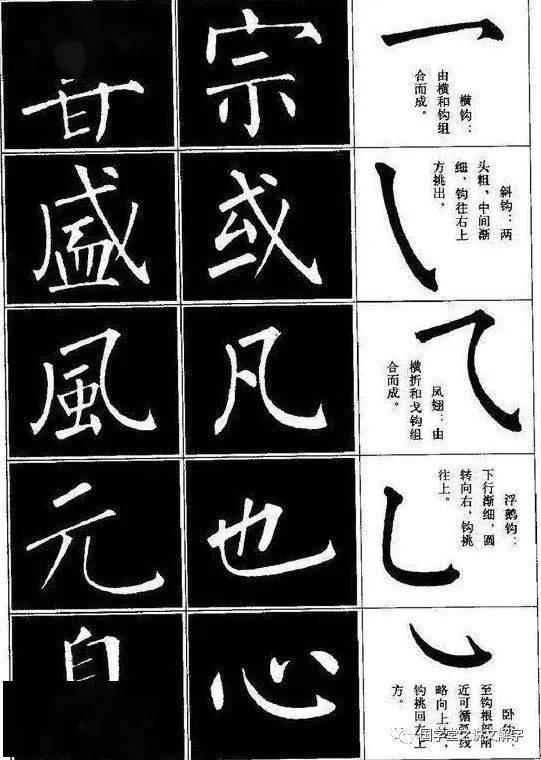 横钩：
由横和钩组
合而成。
宗
斜钩：两
头粗，中间渐
细，钩往右上
方挑出。
或
盛
凤翅：由
横折和戈钩组
合而成。
凡
風
浮鹅钩：
下行渐细，圆
转向右，钩挑
往上。
也
元
卧钩：
至钩根部附
近可循弧线
略向上
钩挑回右上
方。
心
国学堂之说文解字